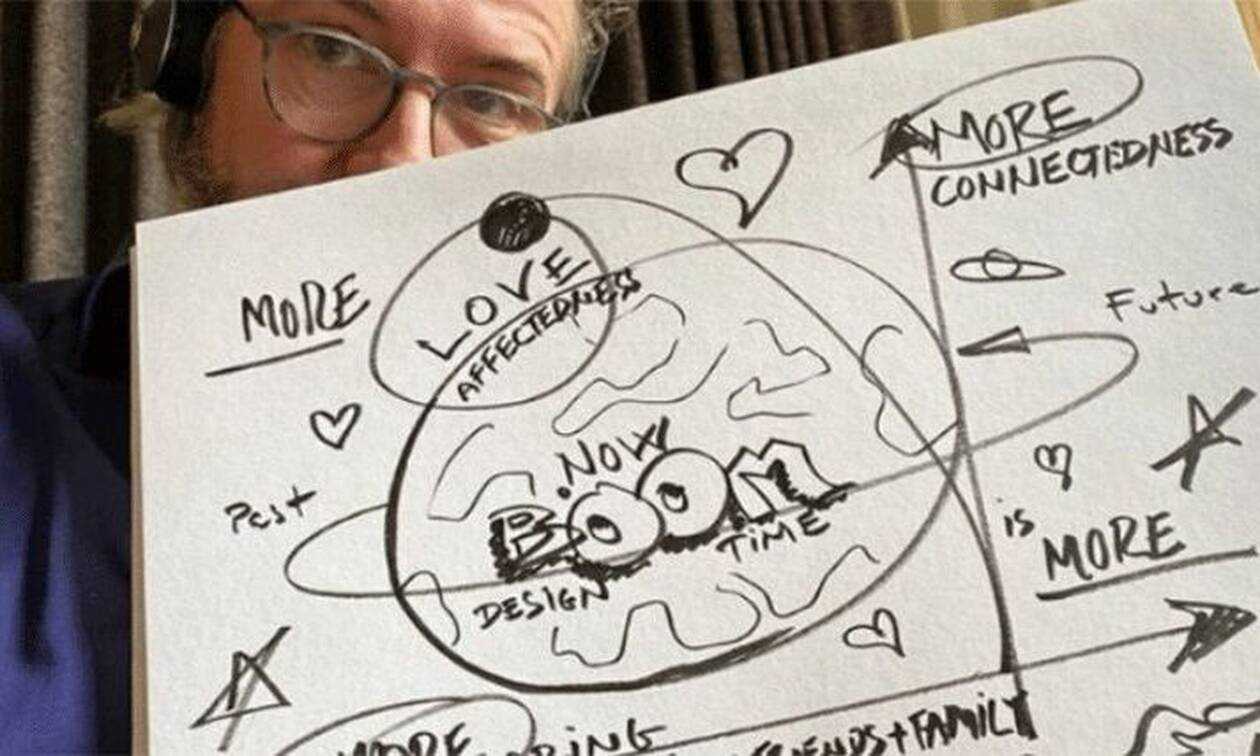 MORE
CONNECTEDNESS
MORE
LOVE
AFFECTEDNESS
Future
NOW
BOOM
TIME
DESIGN
Past
is
MORE
MORE
FRIENDS+FAMILY